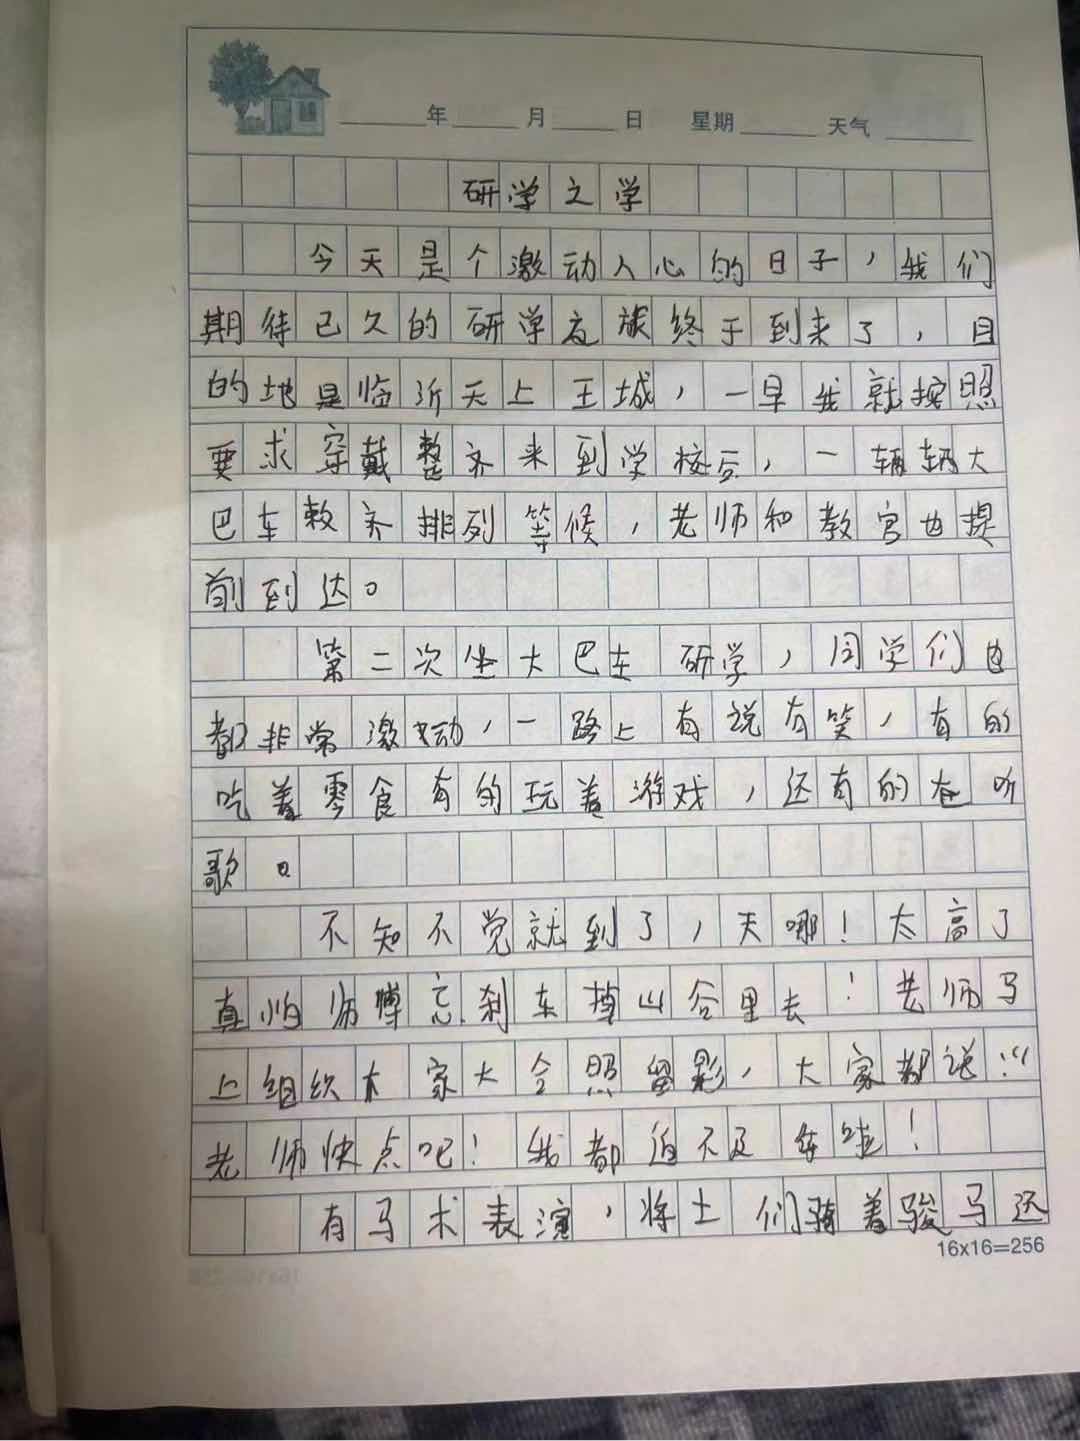 年 月 日 星期 天气
研学之学
今天是个激动人心的日子，我们
期待已久的研学之旅终于到来了，目
的地是临沂天上王城，一早我就按照
要求穿戴整齐来到学校后，一辆辆大
巴车敕齐排列等候，老师和教官也提
前到达。
第二次坐大巴车研学，同学们也
都非常激动，一路上有说有笑，有的
吃着零食有的玩着游戏，还有的在听
歌。
不知不觉就到了，天哪！太高了
真怕师傅忘刹车掉山谷里去！老师马
上组织木家大合照留影，大家都说:“
老师快点吧！我都迫不及待啦！
有马术表演，将士们骑着骏马还
16x16=256